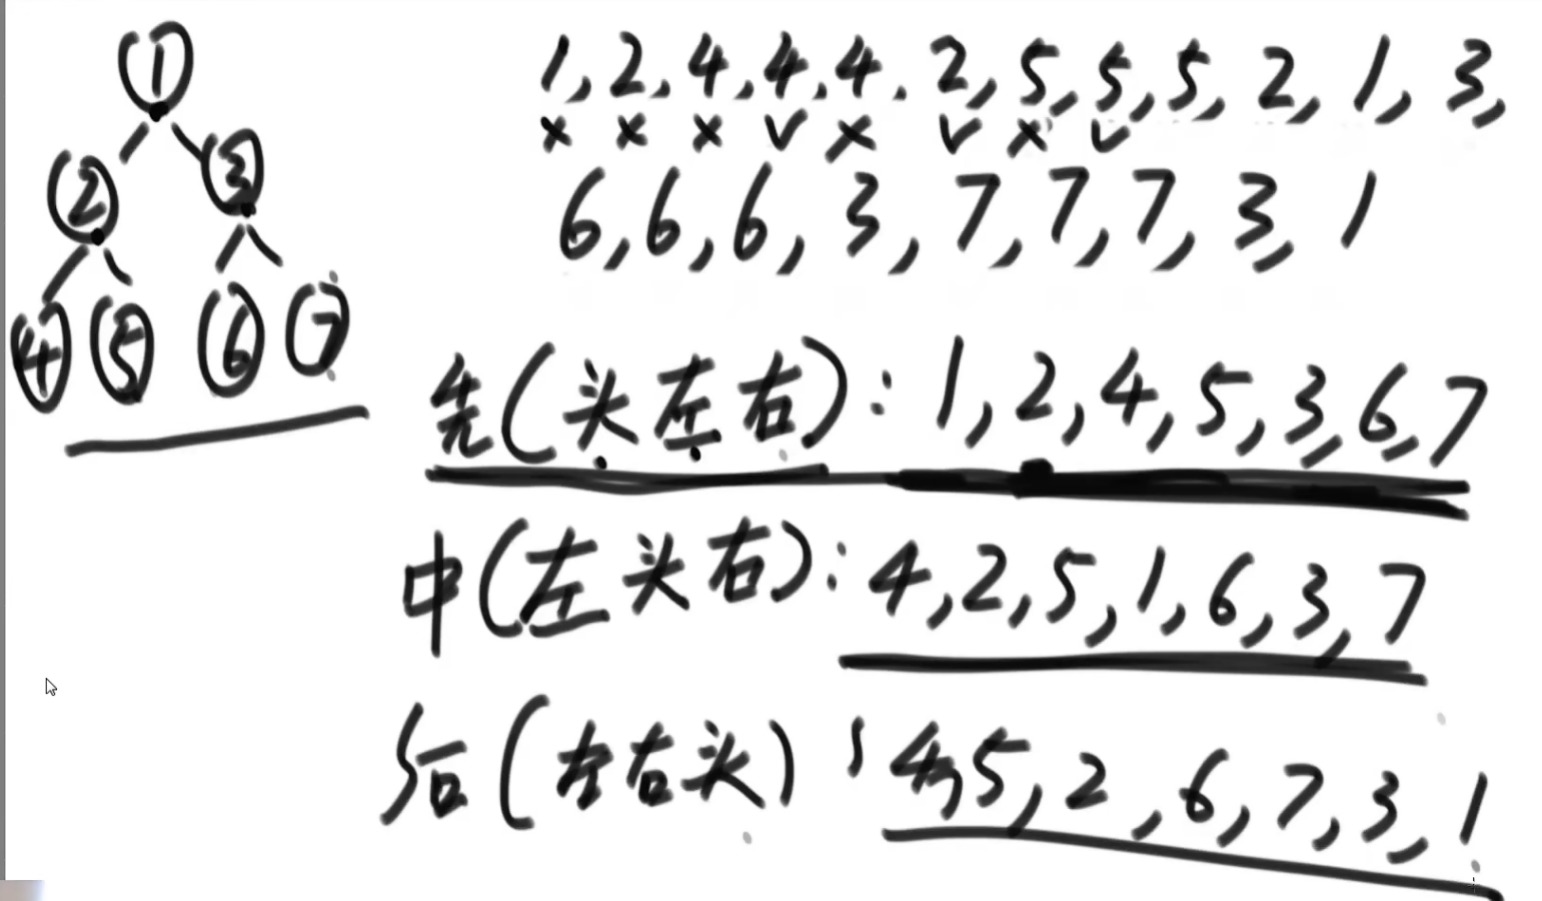 1
2 3
4 5 6 7
1,2,4,4,4.2,5,5,5,2,1,3,
× × × ✓ × ✓ × ✓
6,6,6,3,7,7,7,3,1
先(头左右):1,2,4,5,3,6,7
中(左头右):4,2,5,1,6,3,7
后(左右头):4,5,2,6,7,3,1